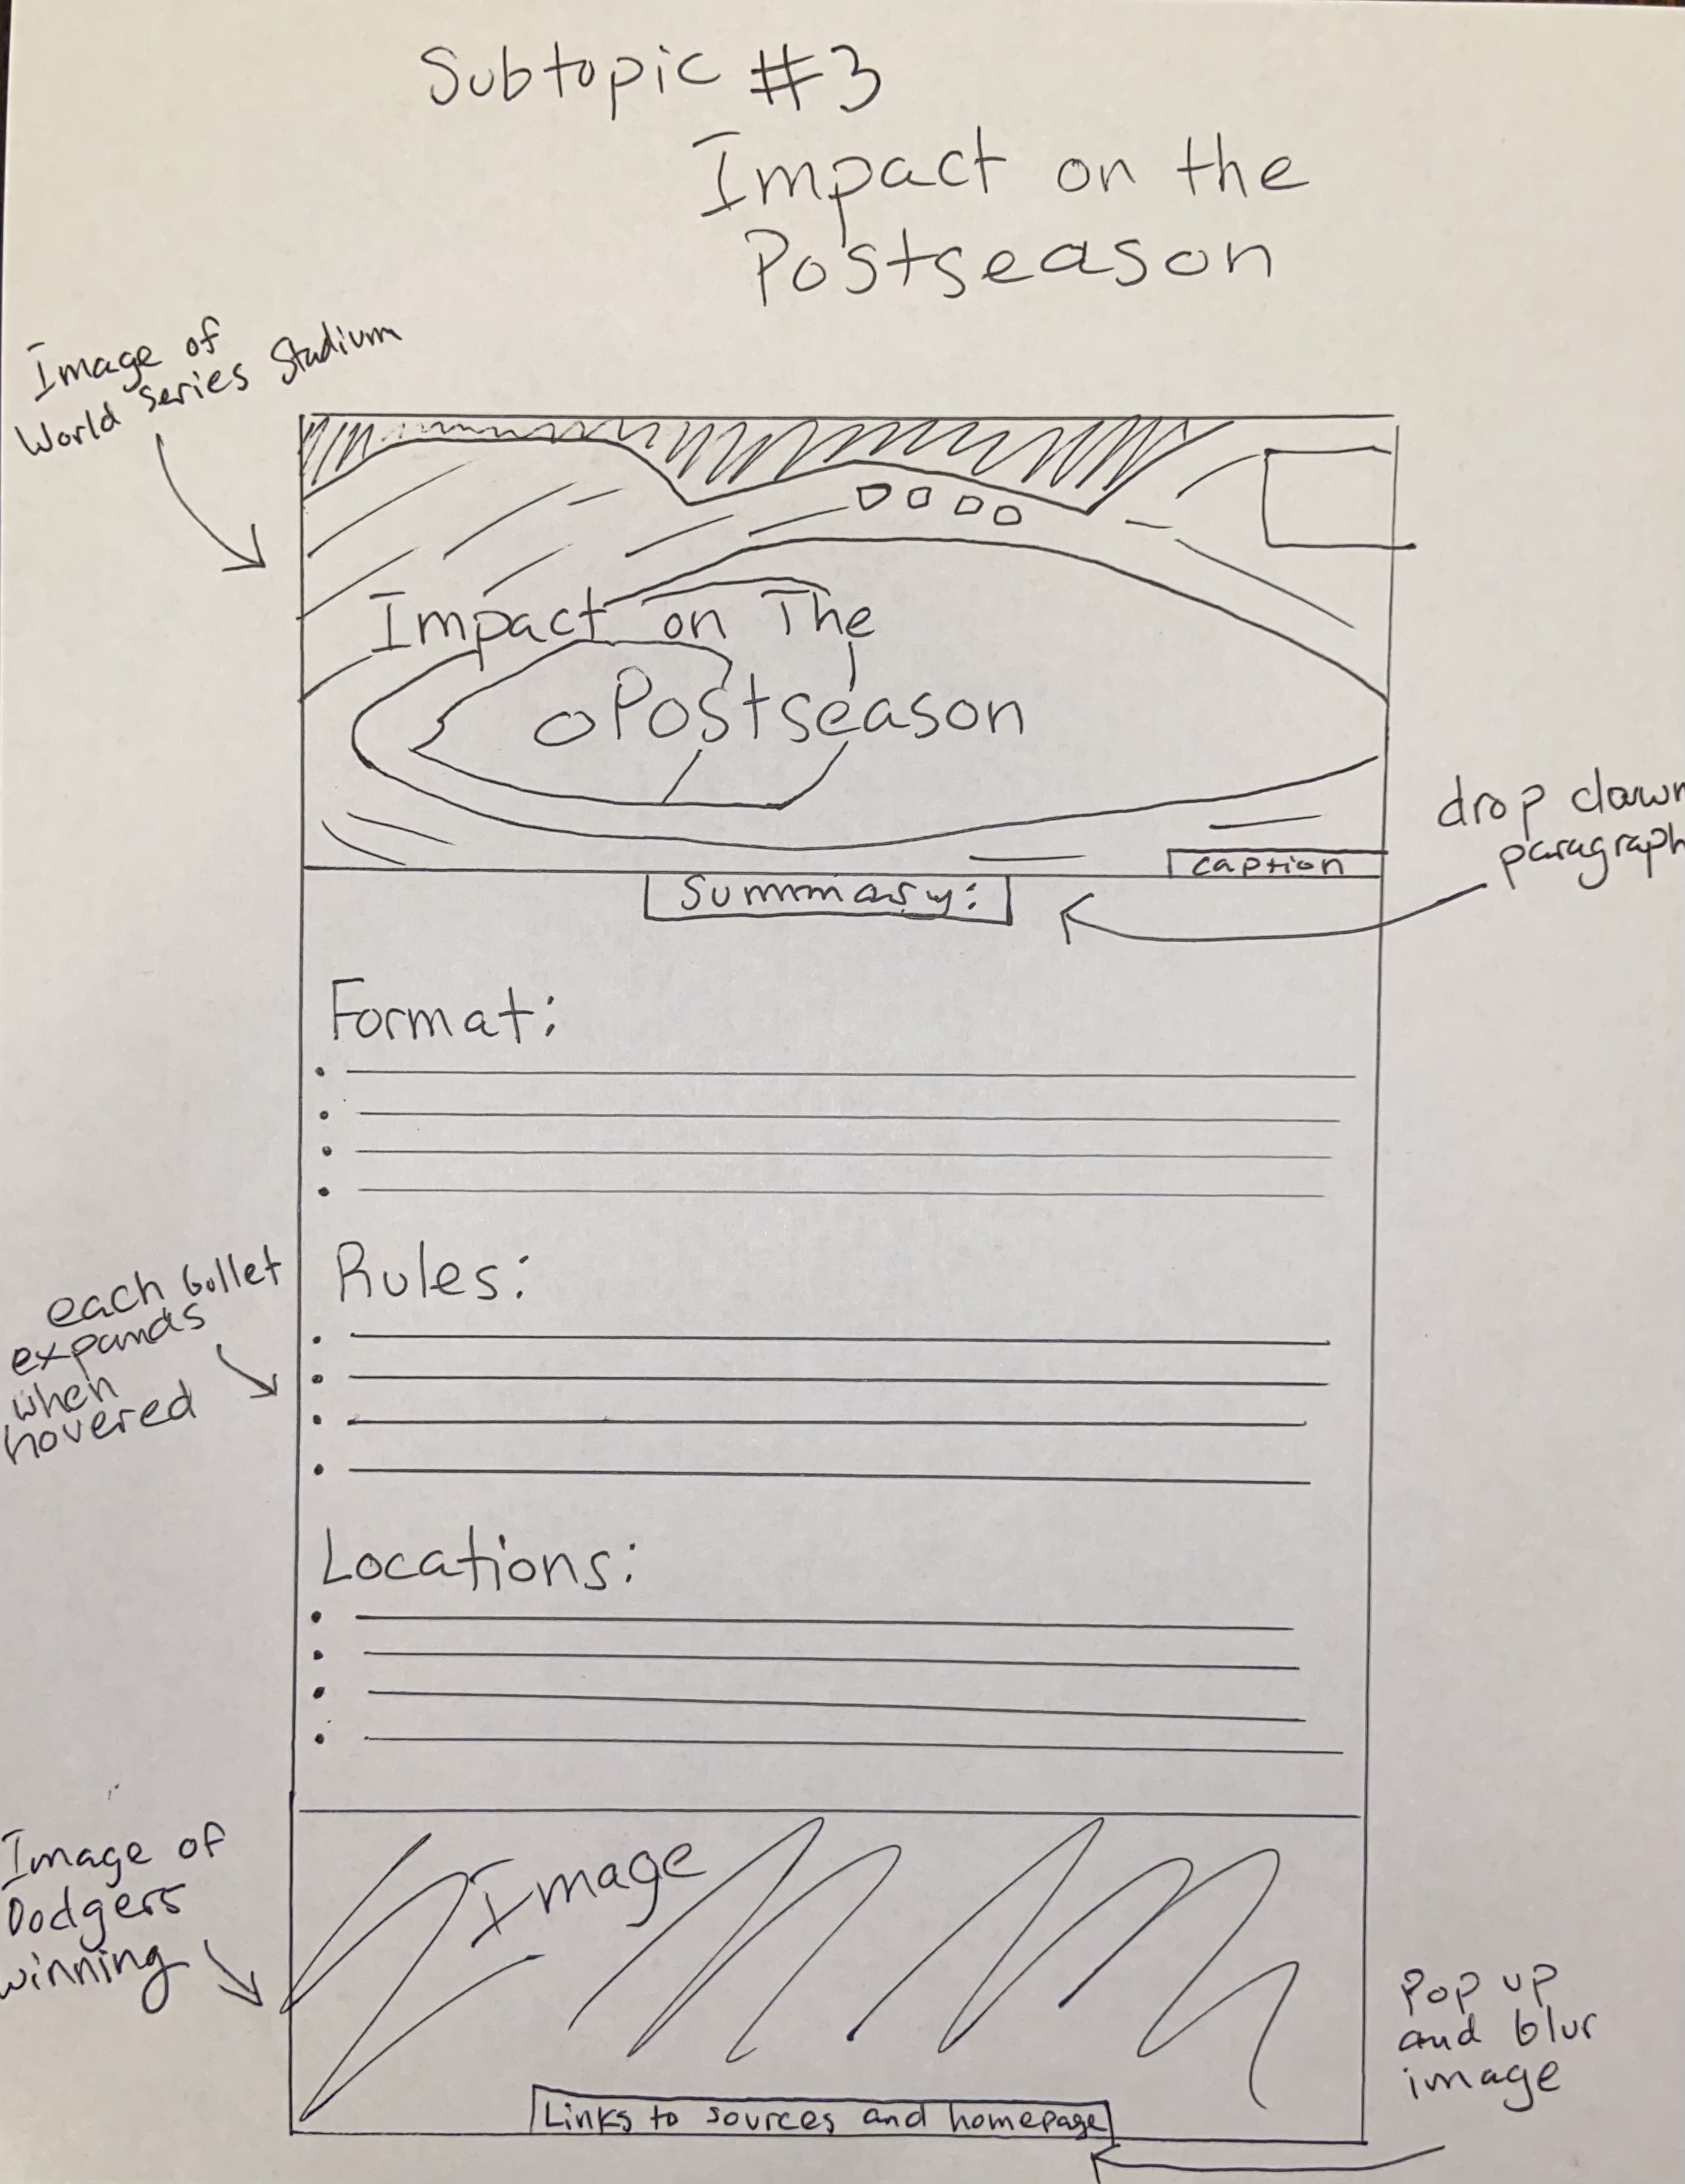 Subtopic #3
Impact on the
Postseason
Image of
World Series Stadium
Impact on The
Postseason
caption
drop down
paragraph
Summary:
Format:
Rules:
each bullet
expands
when
hovered
Locations:
Image of
Dodgers
winning
Image
Pop up
and blur
image
Links to sources and homepage